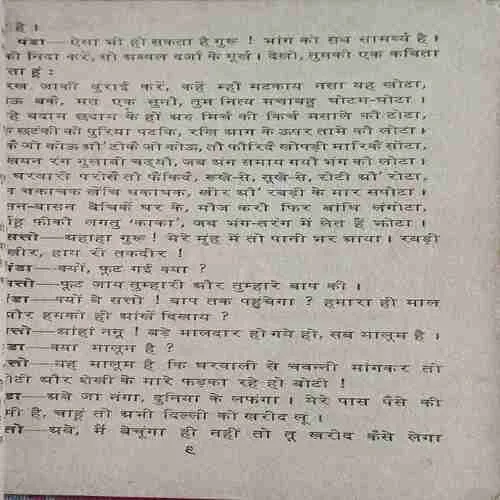 है ।
पंडा—ऐसा भी हो सकता है गुरू ! भांग को सब सामर्थ्य है ।
की निंदा करें, सो अव्वल दर्जा के मूर्ख । देखो, तुमको एक कविता
ता हूं :
रख जाकी बुराई करें, कहें म्हों मटकाय नसा यह खोटा,
ऊ बकै, मत एक सुनौ, तुम नित्य मचाबहु घोटम-घोटा ।
है बदाम छदाम के हों अरु मिर्च की किर्च मसाले कौ टोटा,
छटंकी की पुरिया पटकि, रखि झाग के ऊपर तामे कौ लोटा ।
कै जो कोऊ औ' टोकै जो कोऊ, तौ फौरिंद खोपड़ी मारिकें सोटा,
खयन रंग गुलाबी चढ़्यौ, जब अंग समाय गयौ भंग कौ लोटा ।
घरवारी परोसै तौ फैंकिदें, रूखे-से, सूखे-से, रोटी औ' रोटा,
चकाचक खेंचि धकाधक, खीर औ' रबड़ी के मार सपोटा ।
सन-बासन बेचिकें घर के, मौज करौ फिर बांधि लंगोटा,
हि फीकौ लगतु 'काका', जब भंग-तरंग में लेत हैं झोटा ।
सत्तो—अहाहा गुरू ! मेरे मुंह में तो पानी भर आया । रबड़ी
खीर, हाय री तकदीर !
पंडा—क्यों, फूट गई क्या ?
सत्तो—फूट जाय तुम्हारी और तुम्हारे बाप की ।
पंडा—क्यों बे सत्तो ! बाप तक पहुंचेगा ? हमारा ही माल
और हमको ही आंखें दिखाय ?
सत्तो—ओहो ननू ! बड़े मालदार हो गये हो, सब मालूम है ।
डा—क्या मालूम है ?
त्तो—यह मालूम है कि घरवाली से चवन्नी मांगकर तो
ोटी और शेखी के मारे फड़का रहे हो बोटी !
डा—अबे जा नंगा, दुनिया के लफंगा । मेरे पास पैसे की
मी है, चाहूं तो अभी दिल्ली को खरीद लू ।
तो—अबे, मैं बेचूंगा ही नहीं तो तू खरीद कैसे लेगा
९